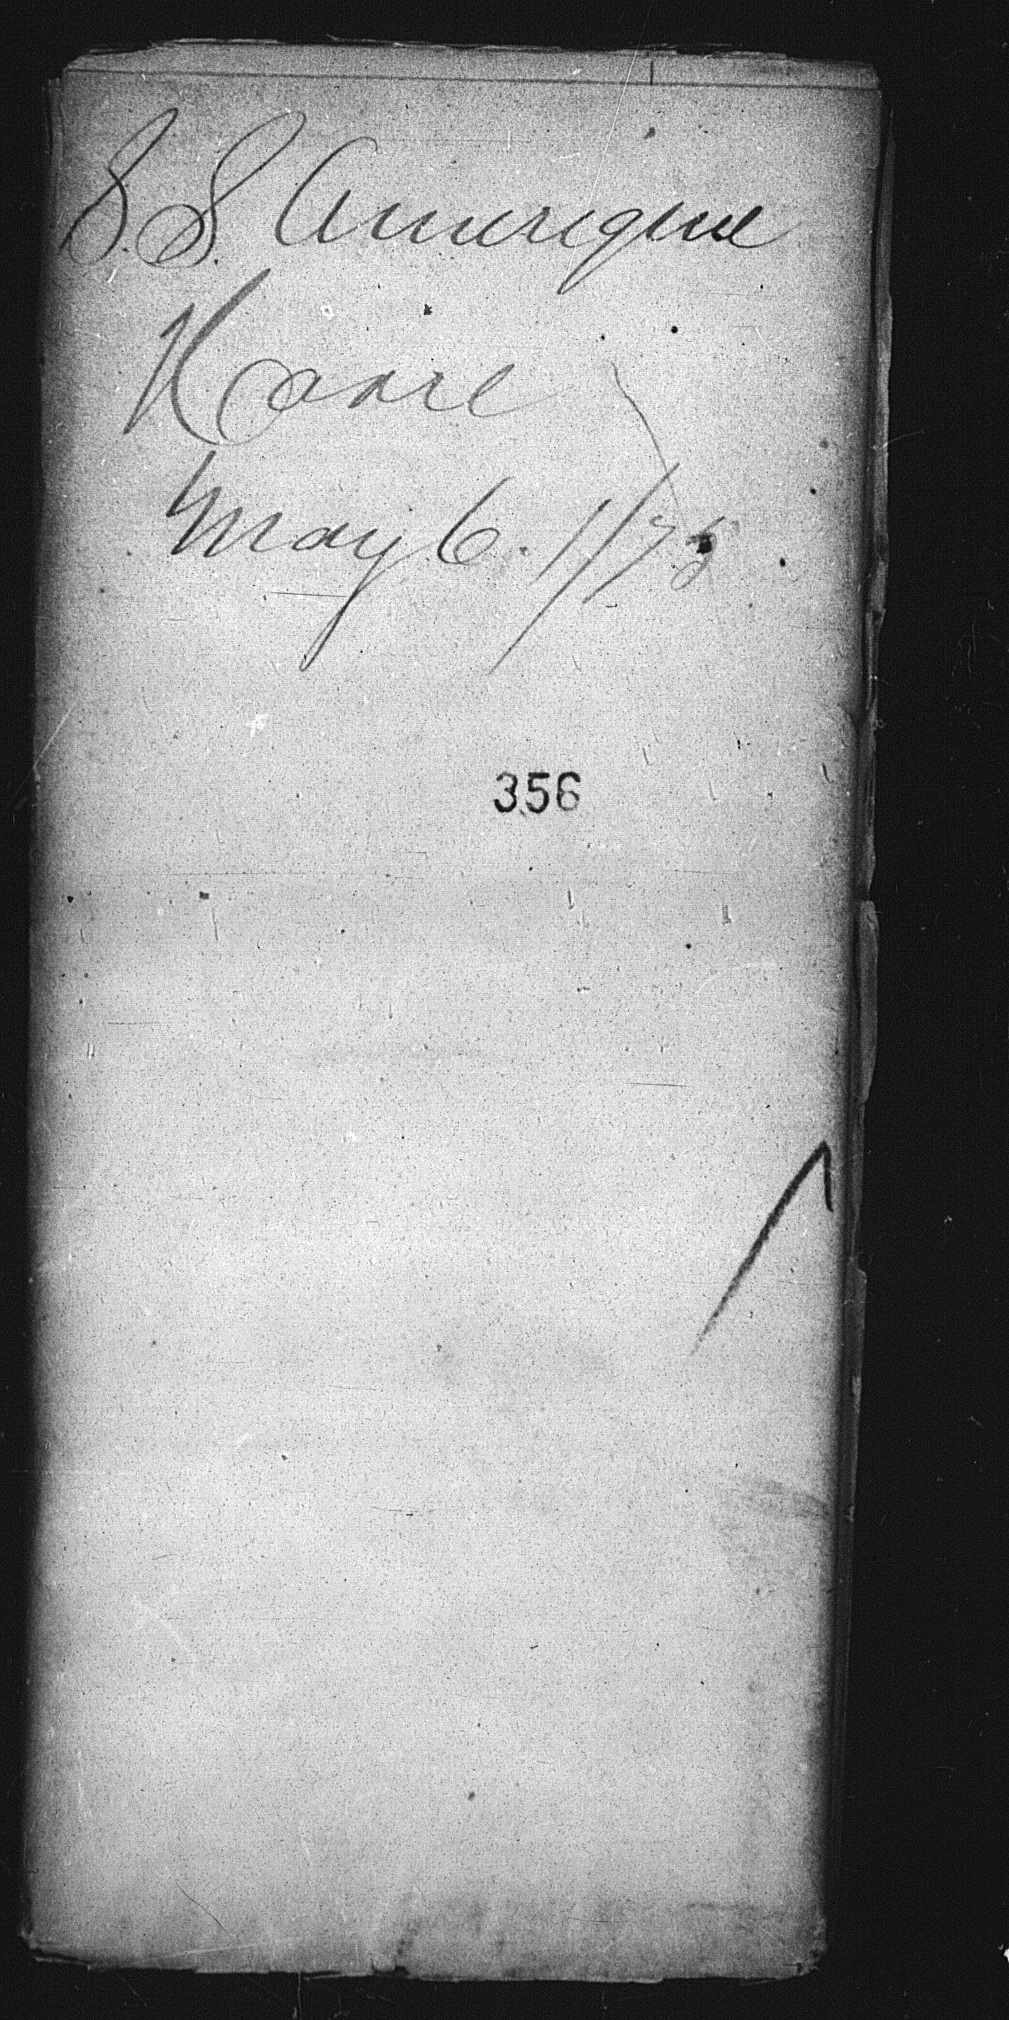 S.S. Amerique
Havre
May 6. 1/73
356